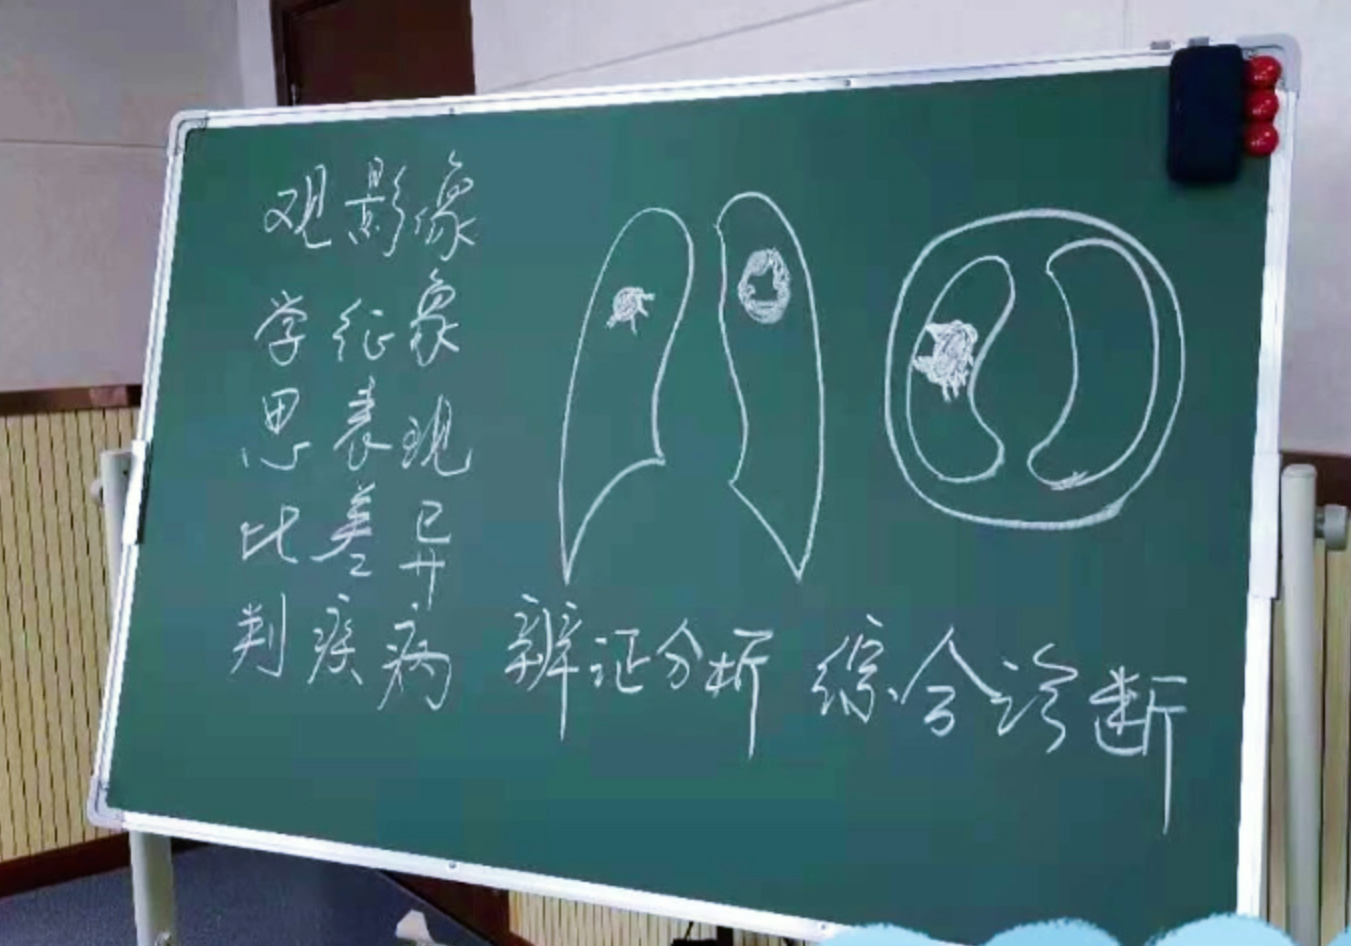 观影像
学征象
思表现
比差异
判疾病 辨证分析 综合诊断